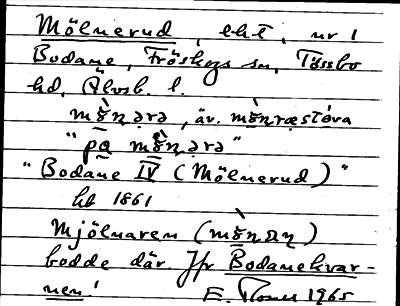 Mölnerud, lht, nr 1
Bodane, Fröskogs sn, Tössbo
hd, Älvsb. l.
mö̀nərə, äv. mö̀nræstóva
"på mö̀nərə"
"Bodane IV (Mölnerud)"
hd 1861
Mjölnaren (mö̀naɳ)
bodde där. Jfr Bodanekvar-
nen!
E. 1965